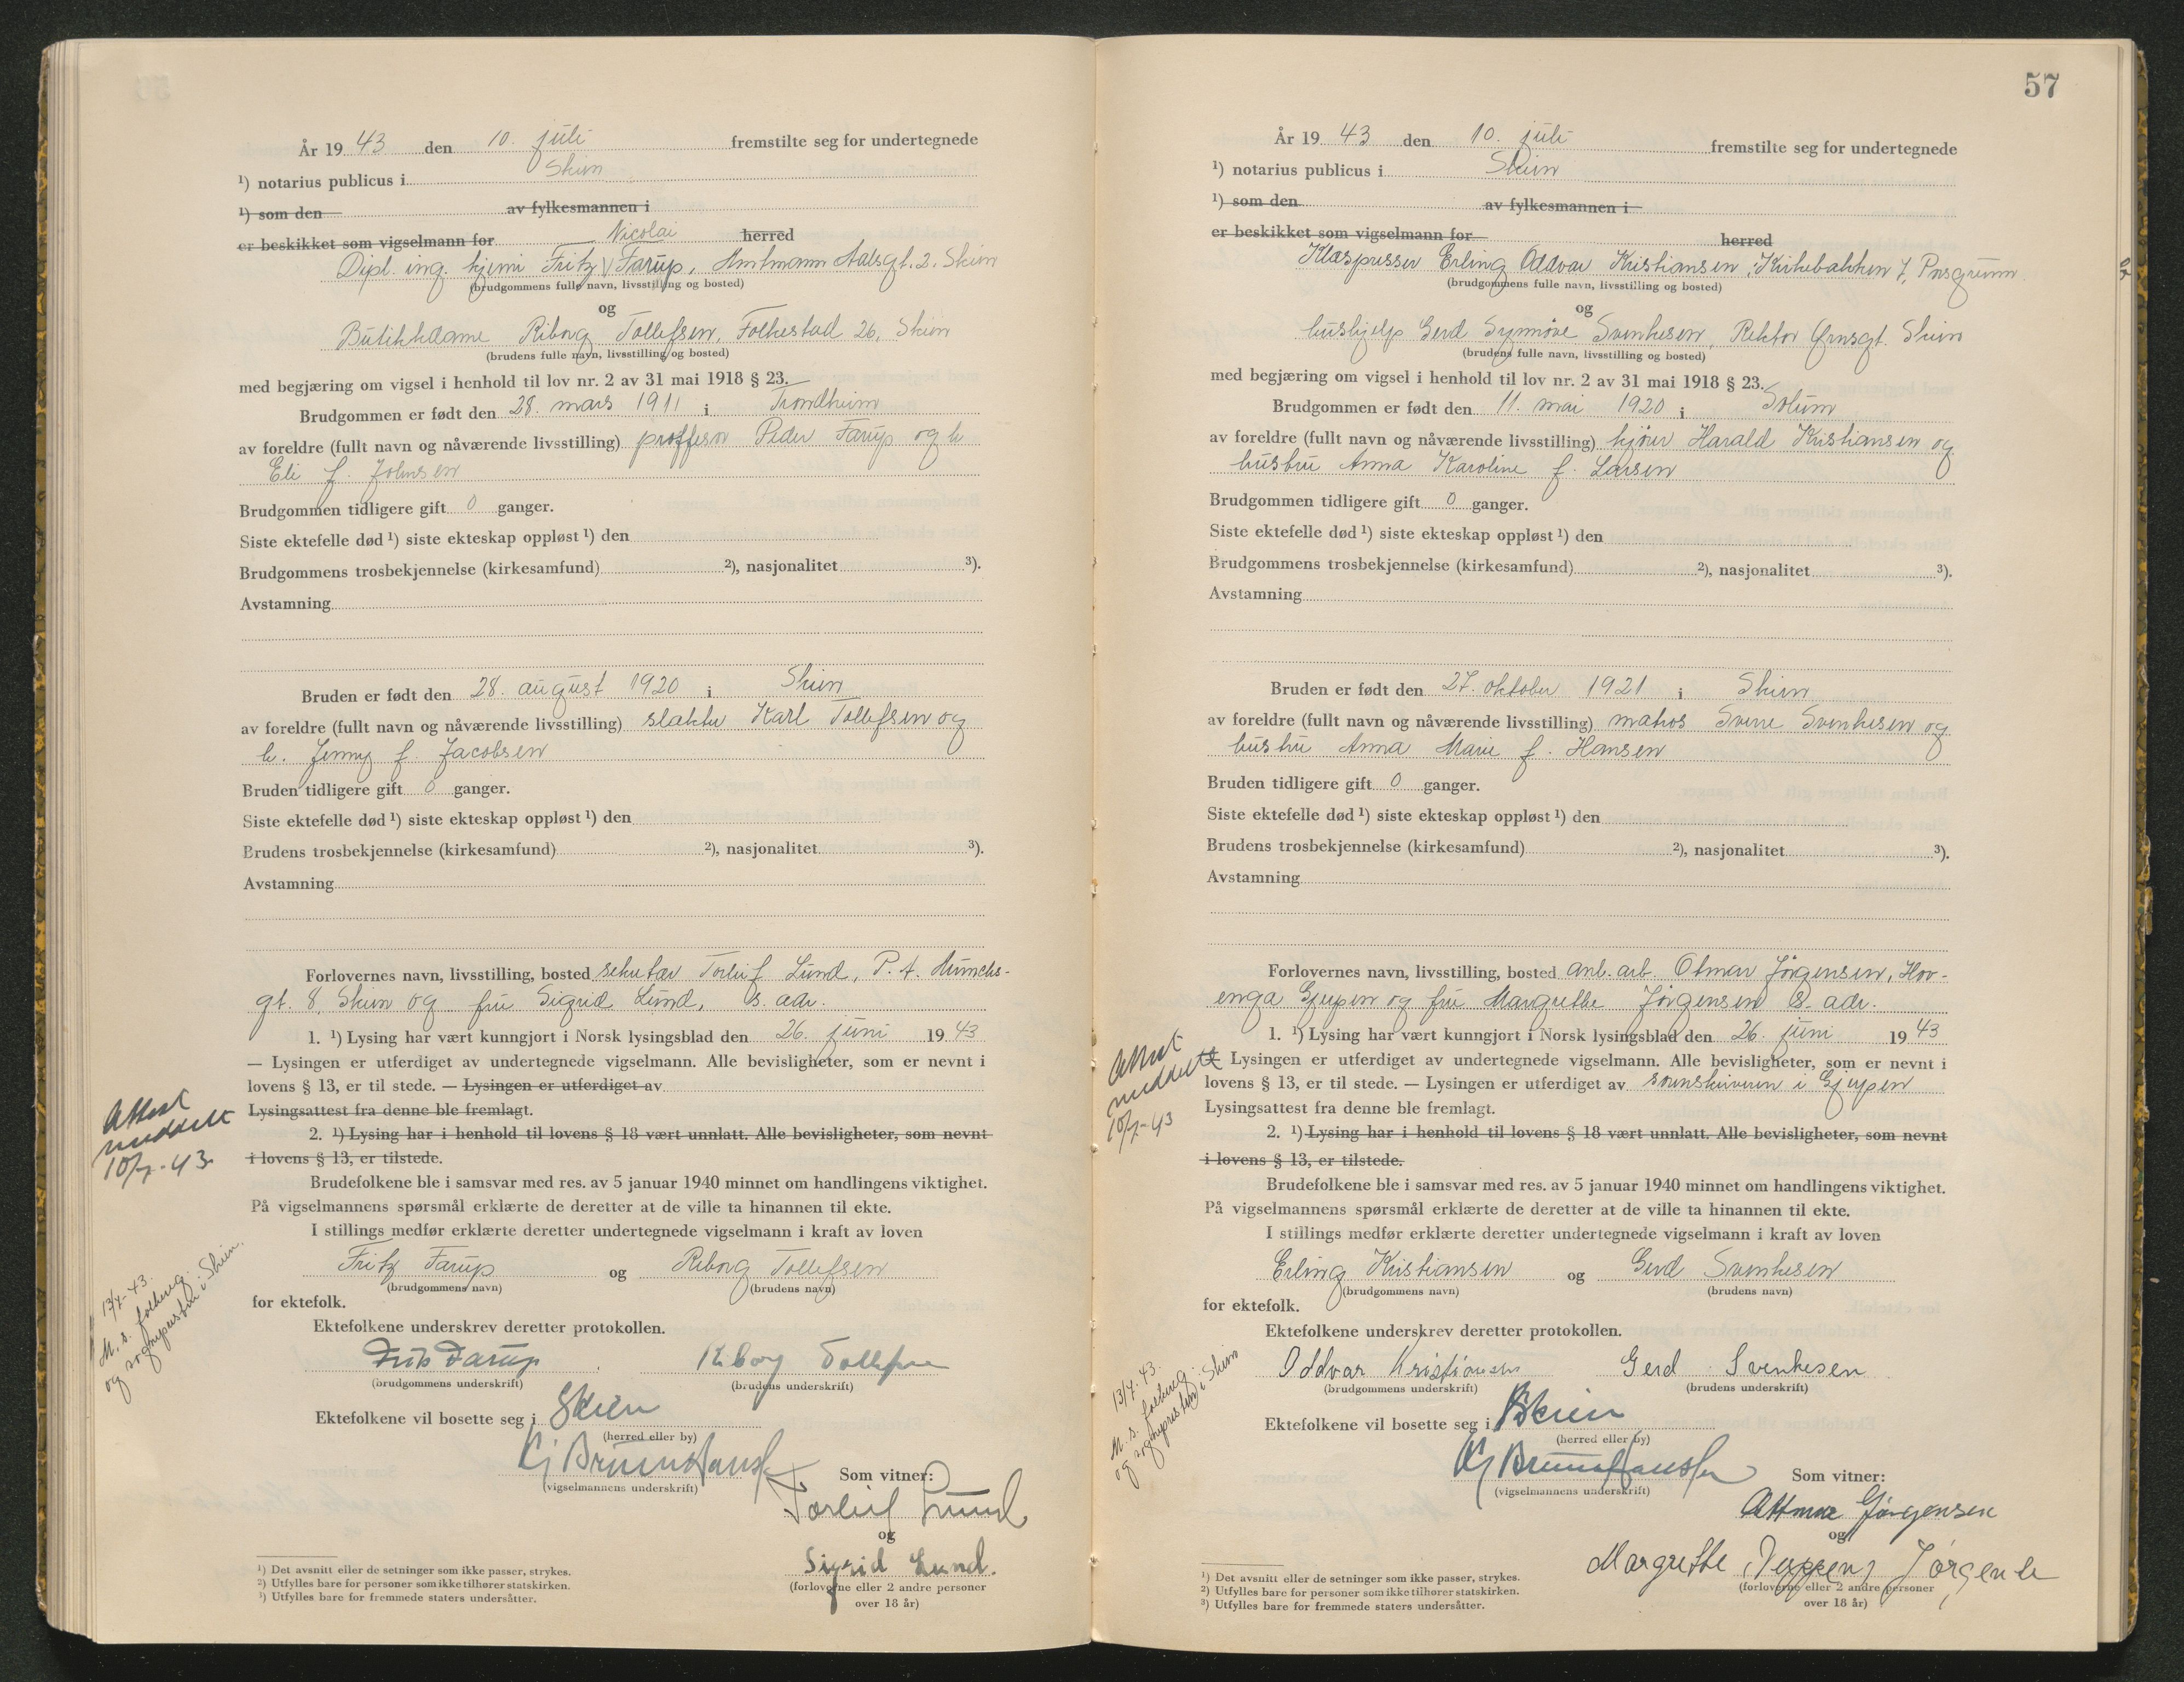 År 19 43 den 10. juli fremstilte seg for undertegnede
¹) notarius publicus i Skien
¹) som den av fylkesmannen i
er beskikket som vigselmann for herred
Nicolai
Dipl. ing. kjemi Fritz \/ Farup, Amtmann Aalsgt. 2. Skien
(brudgommens fulle navn, livsstilling og bosted)
og
Butikkdame Riborg Tollefsen, Folkestad 26, Skien
(brudens fulle navn, livsstilling og bosted)
med begjæring om vigsel i henhold til lov nr. 2 av 31 mai 1918 § 23.
Brudgommen er født den 28. mars 1911 i Trondheim
av foreldre (fullt navn og nåværende livsstilling) proffesor Peder Farup og h
Eli f. Johnsen
Brudgommen tidligere gift 0 ganger.
Siste ektefelle død ¹) siste ekteskap oppløst ¹) den
Brudgommens trosbekjennelse (kirkesamfund) ²), nasjonalitet ³).
Avstamning
Bruden er født den 28. august 1920 i Skien
av foreldre (fullt navn og nåværende livsstilling) slakter Karl Tollefsen og
h. Jenny f. Jacobsen
Bruden tidligere gift 0 ganger.
Siste ektefelle død ¹) siste ekteskap oppløst ¹) den
Brudens trosbekjennelse (kirkesamfund) ²), nasjonalitet ³).
Avstamning
Forlovernes navn, livsstilling, bosted sekretær Torleif Lund, P. A. Munchs-
gt. 8, Skien og fru Sigrid Lund, s. adr.
1. ¹) Lysing har vært kunngjort i Norsk lysingsblad den 26. juni 19 43
— Lysingen er utferdiget av undertegnede vigselmann. Alle bevisligheter, som er nevnt i
lovens § 13, er til stede. — Lysingen er utferdiget av
Lysingsattest fra denne ble fremlagt.
2. ¹) Lysing har i henhold til lovens § 18 vært unnlatt. Alle bevisligheter, som nevnt
i lovens § 13, er tilstede.
Brudefolkene ble i samsvar med res. av 5 januar 1940 minnet om handlingens viktighet.
På vigselmannens spørsmål erklærte de deretter at de ville ta hinannen til ekte.
I stillings medfør erklærte deretter undertegnede vigselmann i kraft av loven
Fritz Farup og Riborg Tollefsen
(brudgommens navn) (brudens navn)
for ektefolk.
Ektefolkene underskrev deretter protokollen.
Fritz Farup Riborg Tollefsen
(brudgommens underskrift) (brudens underskrift)
Ektefolkene vil bosette seg i Skien
(herred eller by)
(vigselmannens underskrift)
Som vitner:
Torleif Lund
og
Sigrid Lund.
(forloverne eller 2 andre personer
over 18 år)
¹) Det avsnitt eller de setninger som ikke passer, strykes.
²) Utfylles bare for personer som ikke tilhører statskirken.
³) Utfylles bare for fremmede staters undersåtter.
Attest
meddelt
10/7-43
13/7-43.
M. s. folkereg.
og sognepresten i Skien.
57
År 19 43 den 10. juli fremstilte seg for undertegnede
¹) notarius publicus i Skien
¹) som den av fylkesmannen i
er beskikket som vigselmann for herred
Klæspresser Erling Oddvar Kristiansen, Kirkebakken 7, Porsgrunn
(brudgommens fulle navn, livsstilling og bosted)
og
hushjelp Gerd Synnøve Svenkesen, Rektor Ørnsgt. Skien
(brudens fulle navn, livsstilling og bosted)
med begjæring om vigsel i henhold til lov nr. 2 av 31 mai 1918 § 23.
Brudgommen er født den 11. mai 1920 i Solum
av foreldre (fullt navn og nåværende livsstilling) kjører Harald Kristiansen og
hustru Anna Karoline f. Larsen
Brudgommen tidligere gift 0 ganger.
Siste ektefelle død ¹) siste ekteskap oppløst ¹) den
Brudgommens trosbekjennelse (kirkesamfund) ²), nasjonalitet ³).
Avstamning
Bruden er født den 27. oktober 1921 i Skien
av foreldre (fullt navn og nåværende livsstilling) matros Sverre Svenkesen og
hustru Anna Marie f. Hansen
Bruden tidligere gift 0 ganger.
Siste ektefelle død ¹) siste ekteskap oppløst ¹) den
Brudens trosbekjennelse (kirkesamfund) ²), nasjonalitet ³).
Avstamning
Forlovernes navn, livsstilling, bosted anl. arb. Otmar Jörgensen, Hov-
enga Gjerpen og fru Margrethe Jörgensen s. adr.
1. ¹) Lysing har vært kunngjort i Norsk lysingsblad den 26. juni 19 43
Lysingen er utferdiget av undertegnede vigselmann. Alle bevisligheter, som er nevnt i
lovens § 13, er til stede. — Lysingen er utferdiget av sorenskriveren i Gjerpen
Lysingsattest fra denne ble fremlagt.
2. ¹) Lysing har i henhold til lovens § 18 vært unnlatt. Alle bevisligheter, som nevnt
i lovens § 13, er tilstede.
Brudefolkene ble i samsvar med res. av 5 januar 1940 minnet om handlingens viktighet.
På vigselmannens spørsmål erklærte de deretter at de ville ta hinannen til ekte.
I stillings medfør erklærte deretter undertegnede vigselmann i kraft av loven
Erling Kristiansen og Gerd Svenkesen
(brudgommens navn) (brudens navn)
for ektefolk.
Ektefolkene underskrev deretter protokollen.
Oddvar Kristiansen Gerd Svenkesen
(brudgommens underskrift) (brudens underskrift)
Ektefolkene vil bosette seg i Skien
(herred eller by)
(vigselmannens underskrift)
Som vitner:
Jörgensen
og
Margrethe Jörgensen
(forloverne eller 2 andre personer
over 18 år)
¹) Det avsnitt eller de setninger som ikke passer, strykes.
²) Utfylles bare for personer som ikke tilhører statskirken.
³) Utfylles bare for fremmede staters undersåtter.
Attest
meddelt
10/7-43
13/7-43.
M. s. folkereg.
og sognepresten i Skien